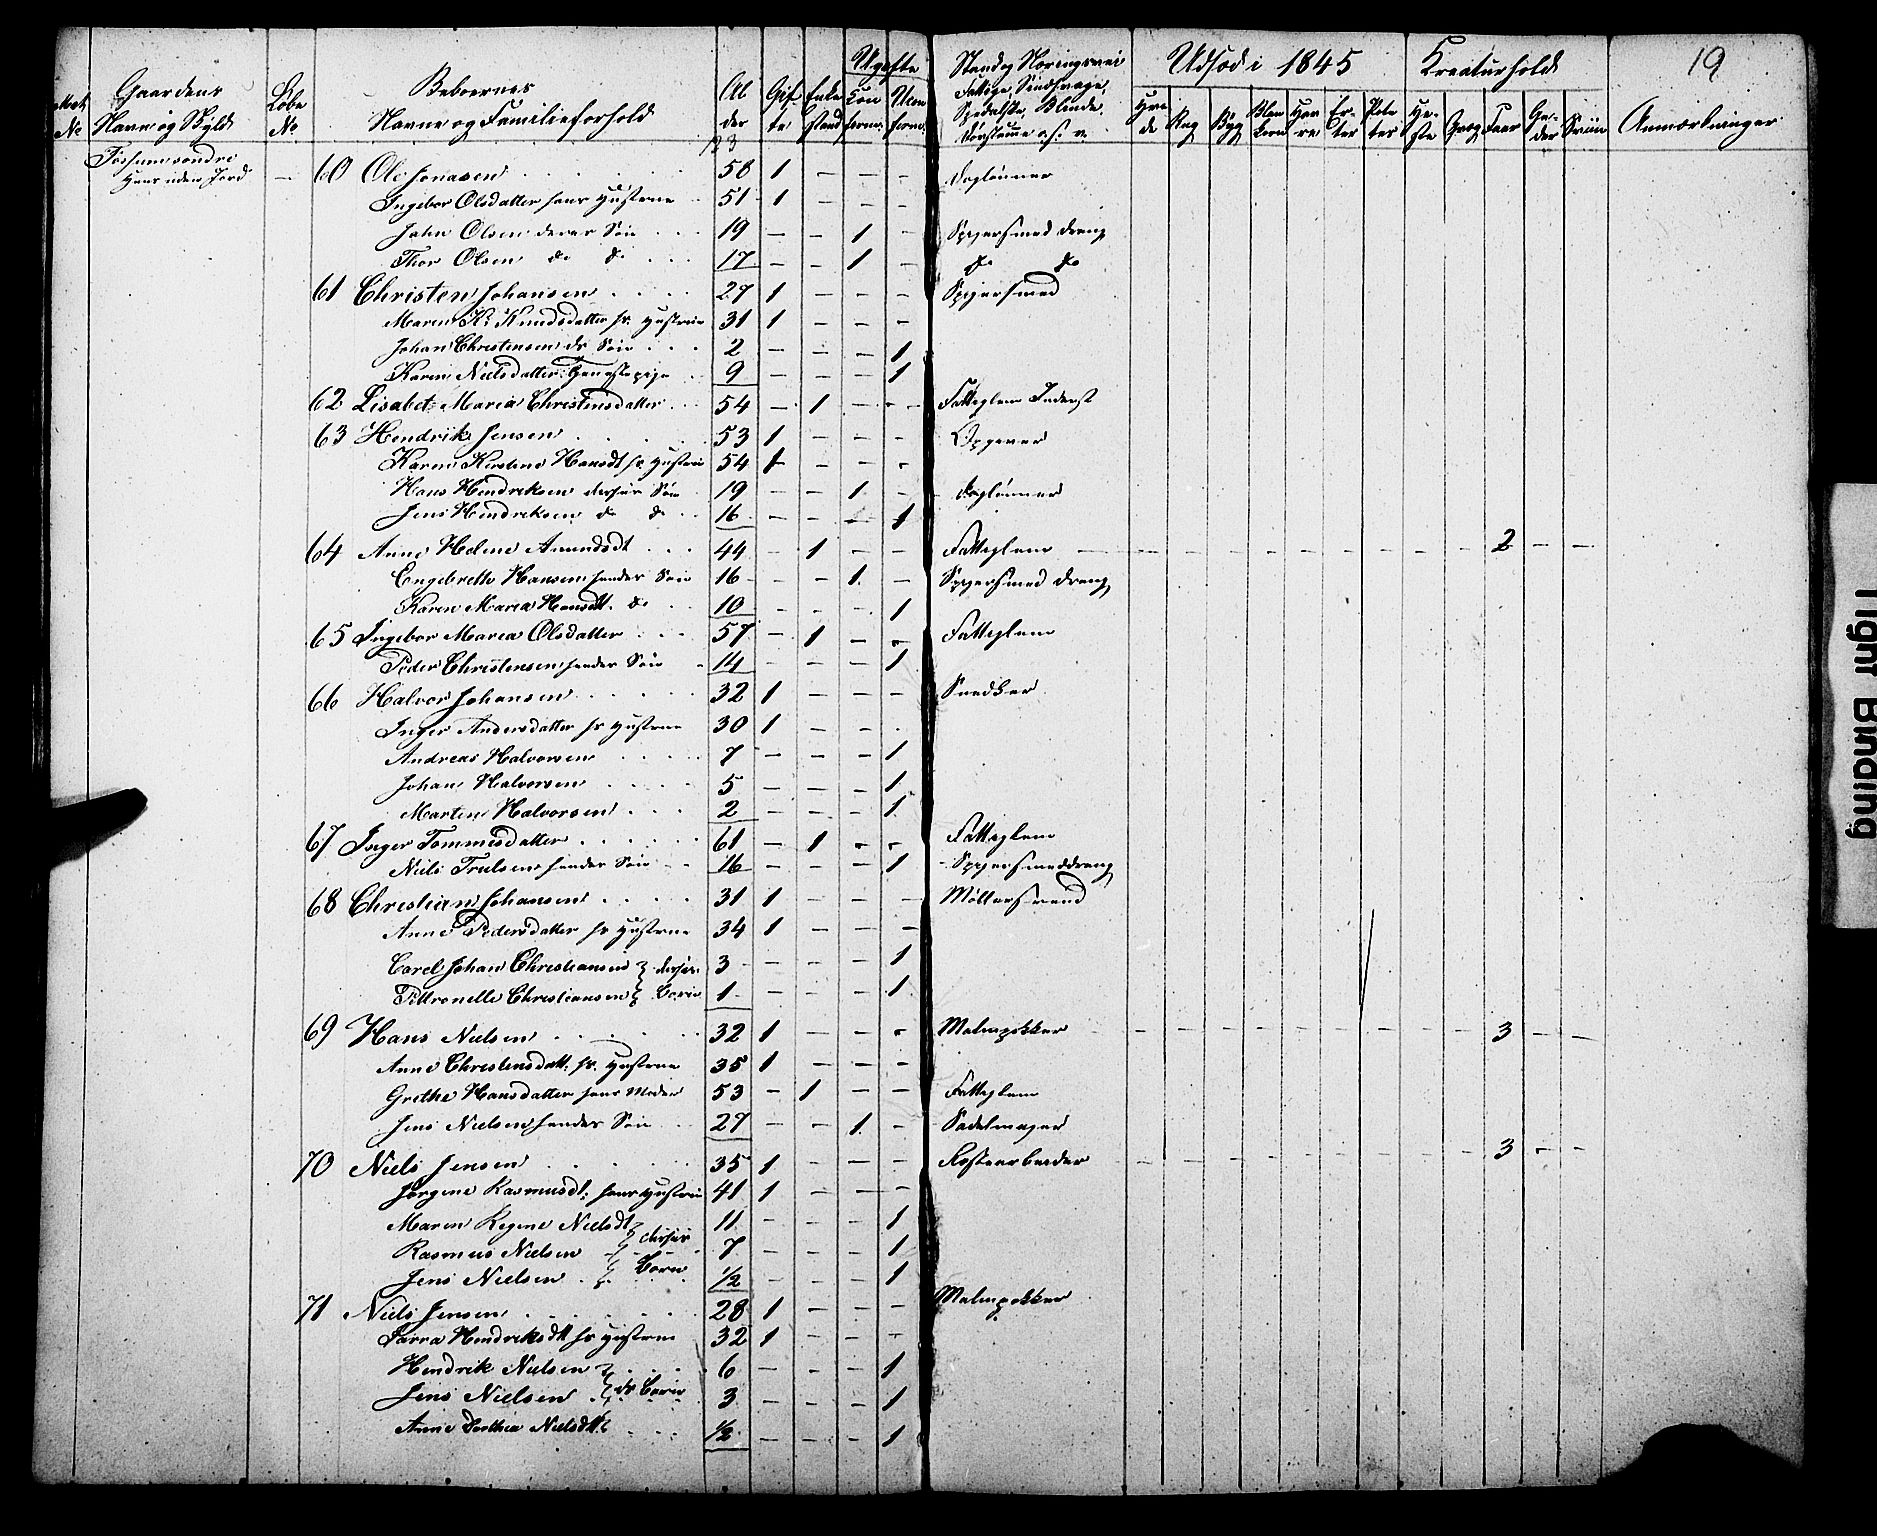 19
Gaardens Navn og Skyld
Løbe No
Beboernes Navne og Familieforhold
Al der
Gif te
Enke stand
Ugifte
Kon firm:
Ukon firm:
Stand og Næringsvei
Fattige, Sindsvage,
Spedalske, Blinde,
Døvstumme o. s. v.
Udsæd i 1845
Hve de
Rug
Byg
Blan korn
Hav re
Er- ter
Pote ter
Kreaturhold
He- ste
Qvæg
Faar
Ge- der
Sviin
Anmærkninger
Fossum søndre
Huus uden Jord
60 Ole Jonasen 58 1 - - - Daglønner
Ingebor Olsdatter hans Hustrue 51 1 - - -
John Olsen deres Søn 19 - - 1 - Spigersmed dreng
Thor Olsen do do 17 - - 1 - do do
61 Christen Johansen 27 1 - - - Spigersmed
Maren Kr Knudsdatter hs Hustrue 31 1 - - -
Johan Christensen ds Søn 2 - - - 1
Karen Nielsdatter: Tjenestepige 9 - - - 1
62 Lisabet Maria Christensdatter 54 - 1 - - Fattiglem Inderst
63 Hendrik Jensen 53 1 - - - Opgiver
Karen Kirstine Hansdt hs Hustrue 54 1 - - -
Hans Hendriksen derser Søn 19 - - 1 - Daglønner
Jens Hendriksen do do 16 - - - 1
64 Anne Helene Amundsdt 44 - 1 - - Fattiglem 2 - -
Engebrette Hansen hendes Søn 16 - - 1 - Spigersmed dreng
Karen Maria Hansdt. do 10 - - - 1
65 Ingebor Maria Olsdatter 57 - 1 - - Fattiglem
Peder Christensen hendes Søn 14 - - - 1
66 Halvor Johansen 32 1 - - - Snedker
Inger Andersdatter hs Hustrue 30 1 - - -
Andreas Halvorsen 7 - - - 1
Johan Halvorsen 5 - - - 1
Marten Halvorsen 2 - - - 1
67 Inger Tommesdatter 61 - 1 - - Fattiglem
Niels Trulsen hendes Søn 16 - - - 1 Spigersmeddreng
68 Christian Johansen 31 1 - - - Møllersvend
Anne Pedersdatter hs Hustrue 34 1 - - -
Carel Johan Christiansen } derser 3 - - - 1
Pettronelle Christiansen } Børn 1 - - - 1
69 Hans Nielsen 32 1 - - - Malmpokker 3 - -
Anne Christensdatt: hs. Hustrue 35 1 - - -
Grethe Hansdatter hans Moder 53 - 1 - - Fattiglem
Jens Nielsen hendes Søn 27 - - 1 - Sadelmager
70 Niels Jensen 35 1 - - - 3 - -
Jørgine Rasmusdt: hans Hustrue 41 1 - - -
Maren Regine Nielsdt } derser 11 - - - 1
Rasmus Nielsen } 7 - - - 1
Jens Nielsen } Børn 1/2 - - - 1
71 Niels Jensen 28 1 - - - Malmpokker
Sarra Hendriksdt hs Hustrue 32 1 - - -
Hendrik Nielsen } 6 - - - 1
Jens Nielsen } ds Børn 3 - - - 1
Anne Dorthea Nielsdtt 1/2 - - - 1
Tight Binding